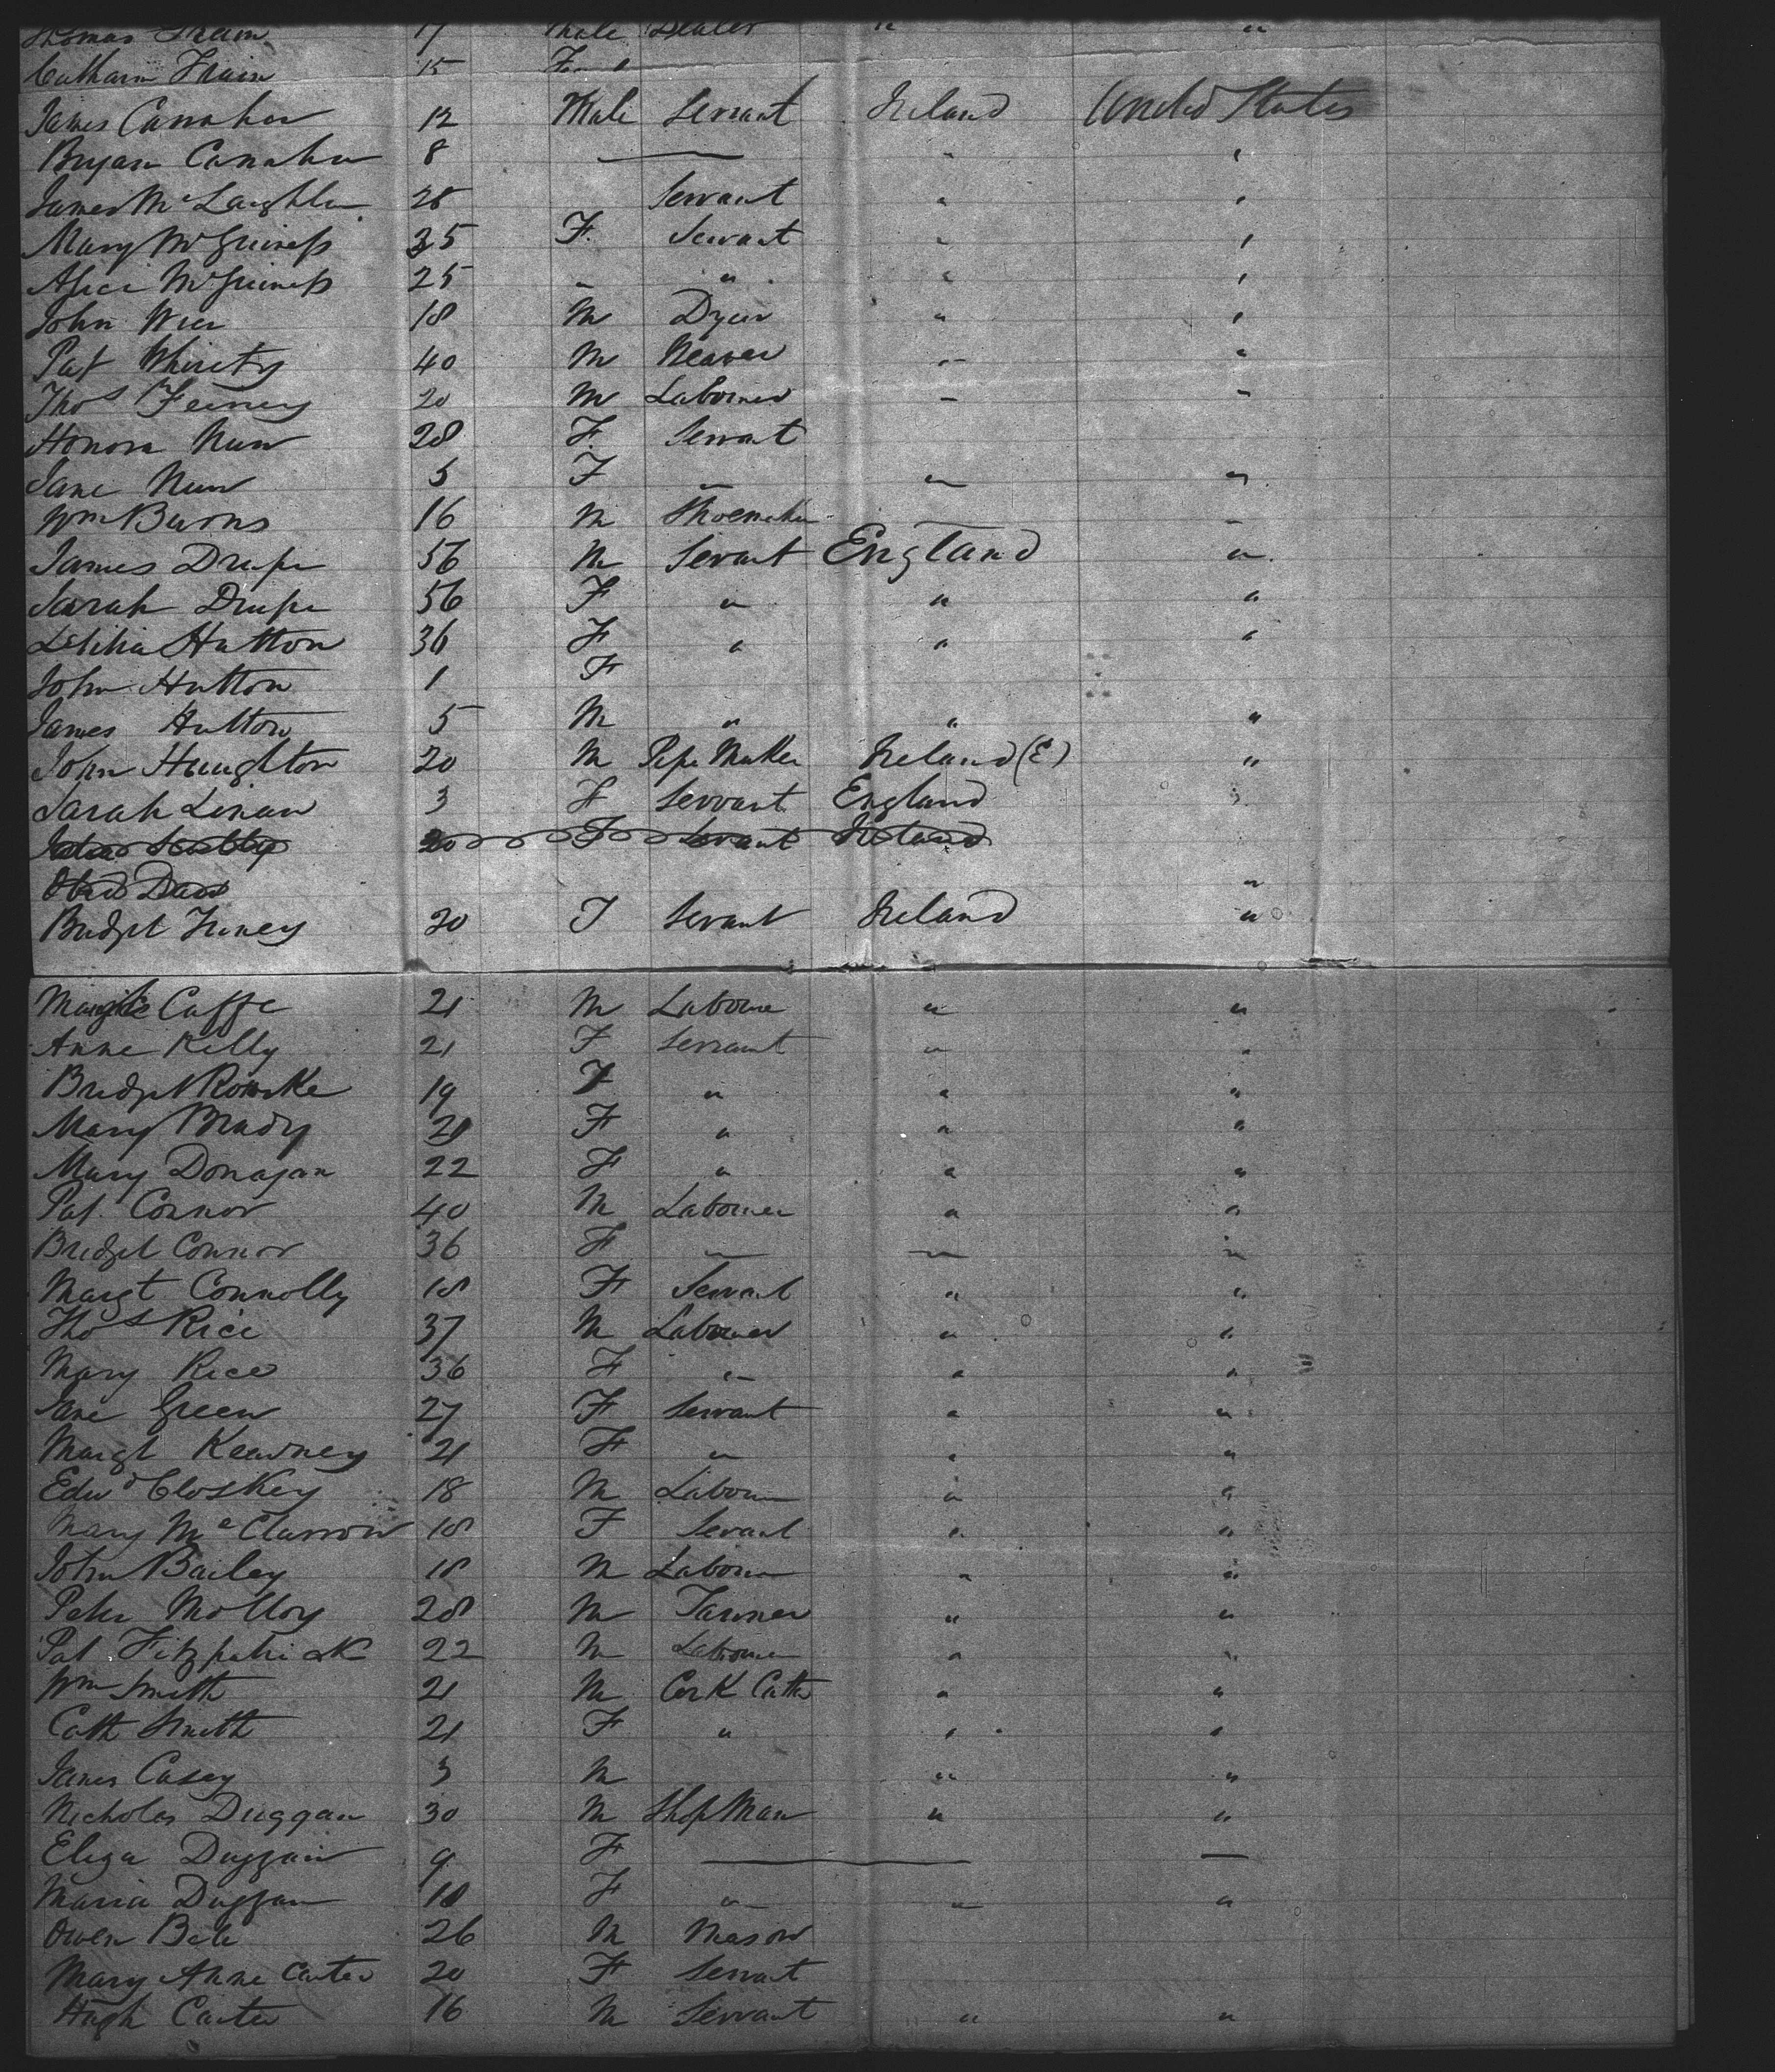 Thomas 17 Male Dealer " "
15
James Canahan 12 Male Servant Ireland United States
Bryan Canahan 8 — " "
James McLaughlin 28 Servant " "
Mary McGuiness 35 F. Servant " "
Alice McGuiness 25 " " " "
John Wier 18 M Dyer " "
Pat 40 M Weaver " "
Thos Feeney 20 M Labourer " "
Honora Nunn 28 F. Servant
Jane Nunn 5 F " " "
Wm Burns 16 M Shoemaker — "
James Drape 56 M Servant England "
Sarah Drape 56 F " " "
Letitia Hutton 36 F " " "
John Hutton 1 F
James Hutton 5 M " " "
John Haughton 20 M Pipe Maker Ireland (E) "
Sarah Linan 3 F Servant England "
20 F Servant Ireland
"
Bridget Feeney 20 F Servant Ireland "
Caffe 21 M Laboure " "
Anne Kelly 21 F Servant " "
Bridget Rourke 19 F " " "
Mary Brady 20 F " " "
Mary Donagan 22 F " " "
Pat. Connor 40 M Labourer " "
Bridget Connor 36 F " " "
Margt Connolly 18 F Servant " "
Thos Rice 37 M Labourer " "
Mary Rice 36 F " " "
Jane Green 27 F Servant " "
Margt Kearney 21 F " " "
Edwd Closkey 18 M Labourer " "
Mary McClarron 18 F Servant " "
John Bailey 18 M Labourer " "
Peter Molloy 28 M Farmer " "
Pat Fitzpatrick 22 M Labourer " "
Wm Smith 21 M Cork Cutter " "
Cath Smith 21 F " " "
James Casey 3 M " "
Nicholas Duggan 30 M Shop Man " "
Eliza Duggan 9 F — —
Maria Duggan 18 F " " "
Owen Bele 26 M Mason
Mary Anne Carter 20 F Servant
Hugh Carter 16 M Servant " "